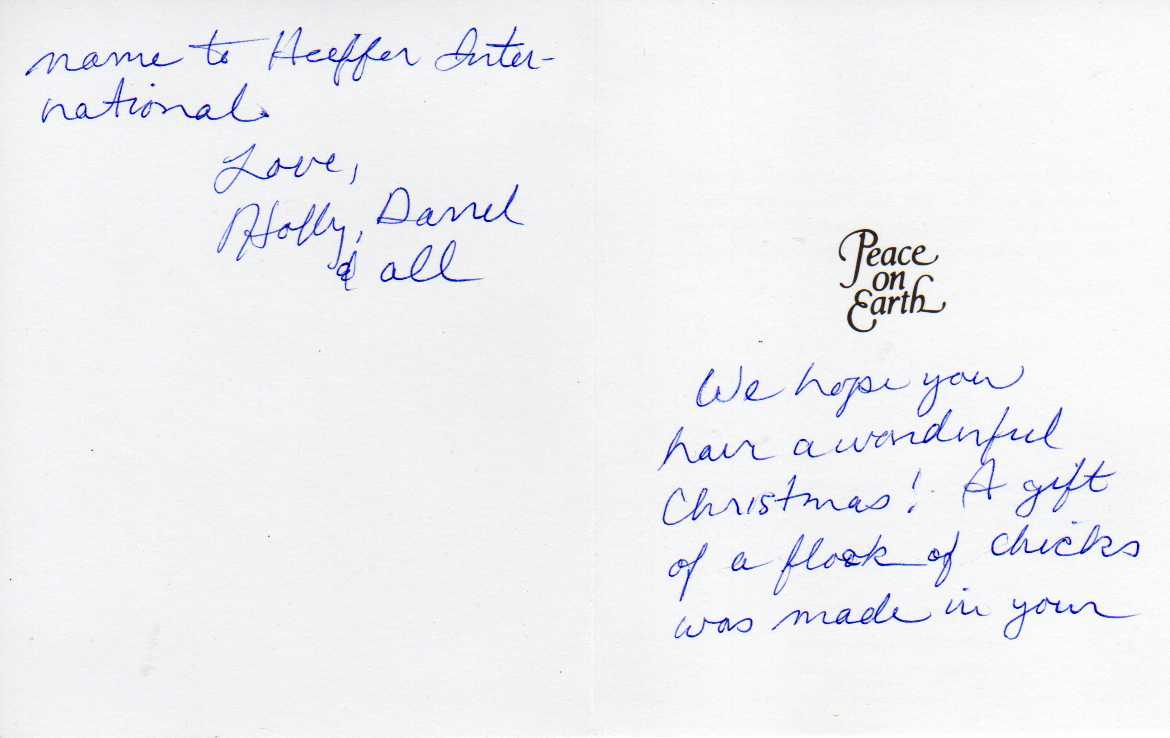 Peace
on
Earth
We hope you
have a wonderful
Christmas! A gift
of a flock of chicks
was made in your
name to Heiffer Inter-
national.
Love,
Holly, Darrel
& all